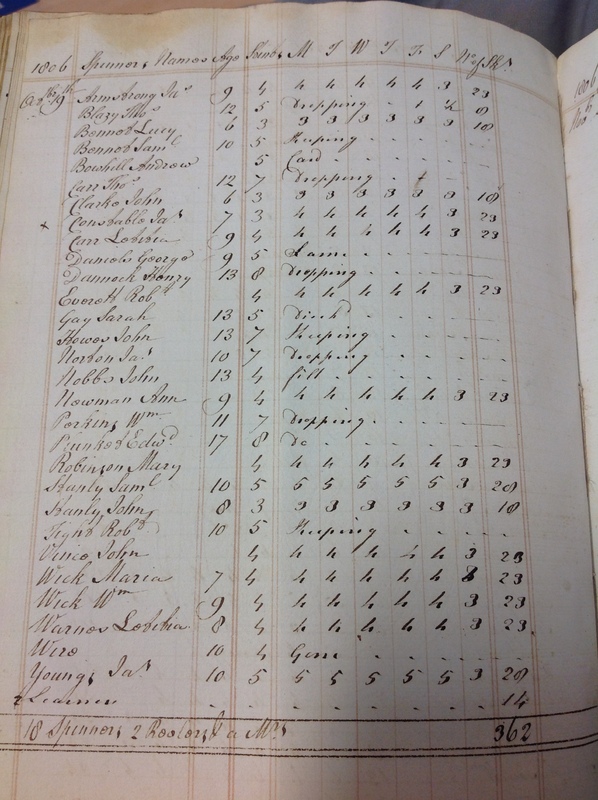 1806 Spinners Names Age M T W T F S No of Sks
Octr 19th Armstrong Jas 9 4 4 4 4 4 4 3 23
Blazy Thos 12 5 Dropping 1 8
Bennet Lucy 6 3 3 3 3 3 3 3 18
Bennet Saml 10 5 Keeping
Bowhill Andrew 5 Card
Carr Thos 12 7 Dropping
Clarke John 6 3 3 3 3 3 3 3 18
x Constable Jas 7 3 4 4 4 4 4 3 23
Carr Letitia 9 4 4 4 4 4 4 3 23
Daniels George 9 5 Lame
Dannock Henry 13 8 Dropping
Everett Robt 4 4 4 4 4 4 3 23
Gay Sarah 13 5
Howes John 13 7 Keeping
Norton Jas 10 7 Dropping
Nobbs John 13 4 fill
Newman Ann 9 4 4 4 4 4 4 3 23
Perkins Wm 11 7 Dropping
Edwd 17 8 Do
Robinson Mary 4 4 4 4 4 4 3 23
Stanly Saml 10 5 5 5 5 5 5 3 28
Stanly John 8 3 3 3 3 3 3 3 18
Tight Robt 10 5 Keeping
Vince John 4 4 4 4 4 4 3 23
Wick Maria 7 4 4 4 4 4 4 3 23
Wick Wm 9 4 4 4 4 4 4 3 23
Warnes Letitia 8 4 4 4 4 4 4 3 23
Wire 10 4 Gone
Youngs Jas 10 5 5 5 5 5 5 3 28
2 Learners 14
18 Spinners 2 Reelers & a Mrs 362